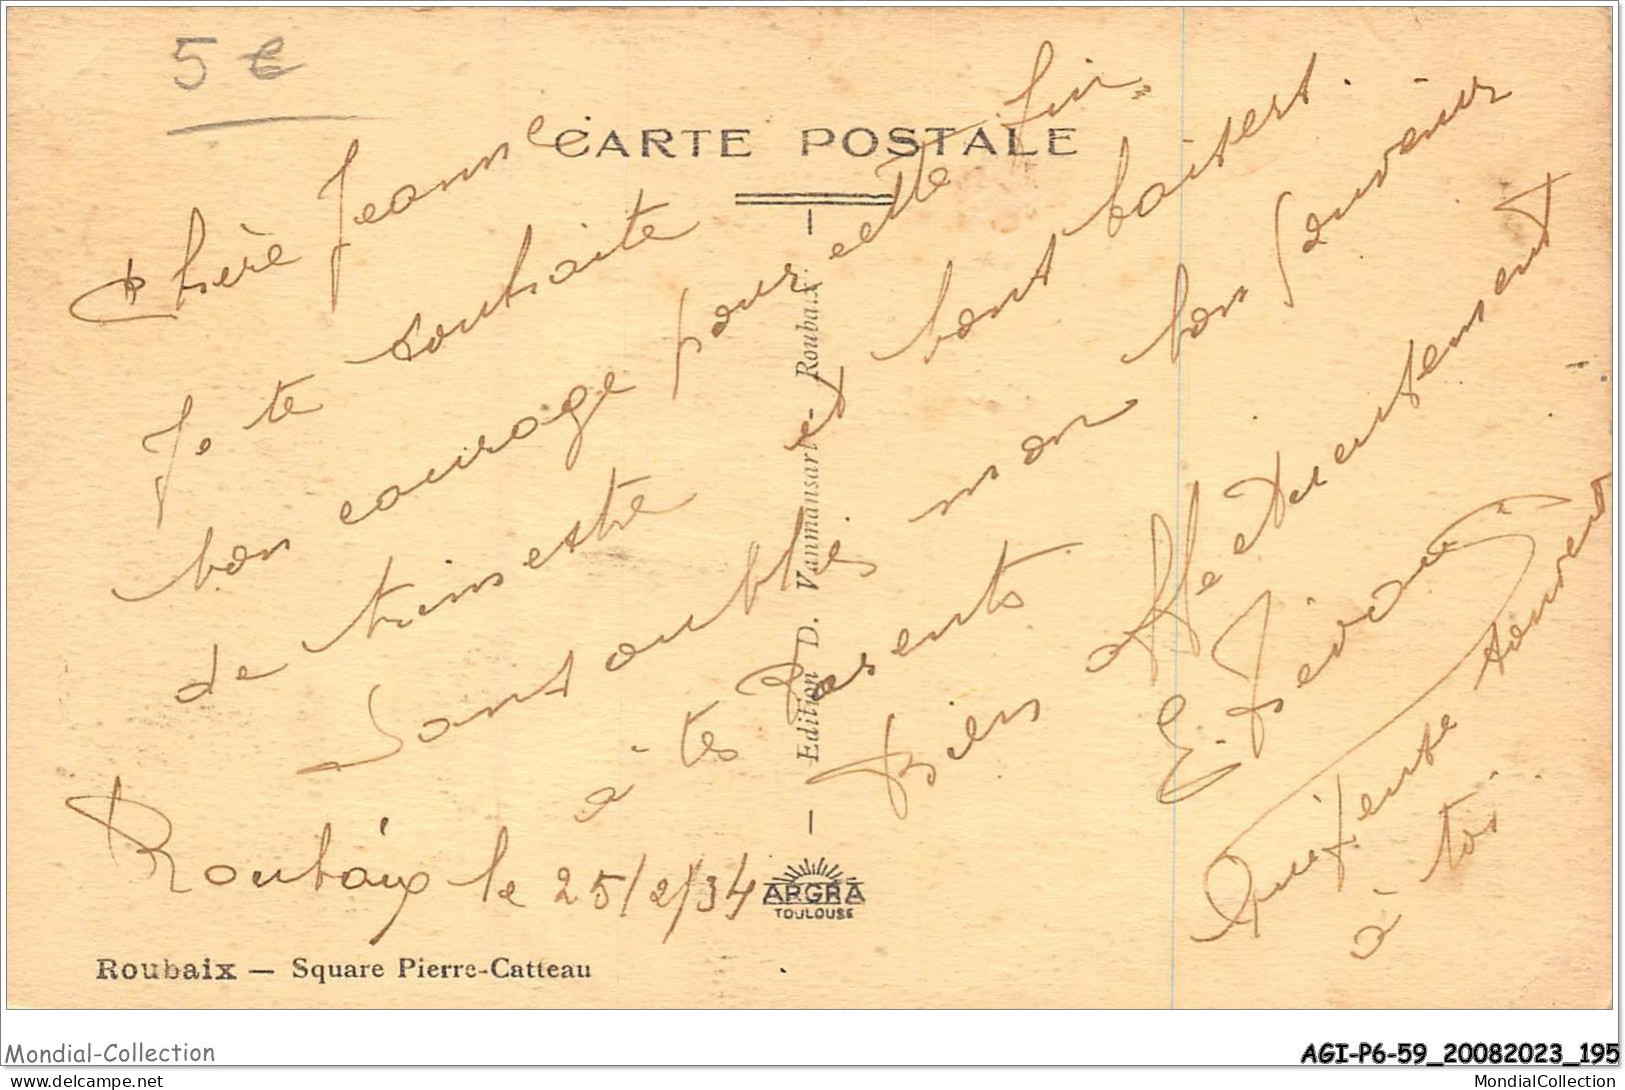 5 €
CARTE POSTALE
Chère Jeanne
Je te souhaite
bon courage pour cette fin
de trimestre et bons baisers.
Sans oublier mon bon souvenir
à tes Parents
Bien affectueusement
E.
qui pense souvent
à toi.
Roubaix le 25/2/34
Edition D. Vanmansart - Roubaix.
ARGRA
TOULOUSE
Roubaix — Square Pierre-Catteau
Mondial-Collection
AGI-P6-59_20082023_195
delcampe.net
MondialCollection